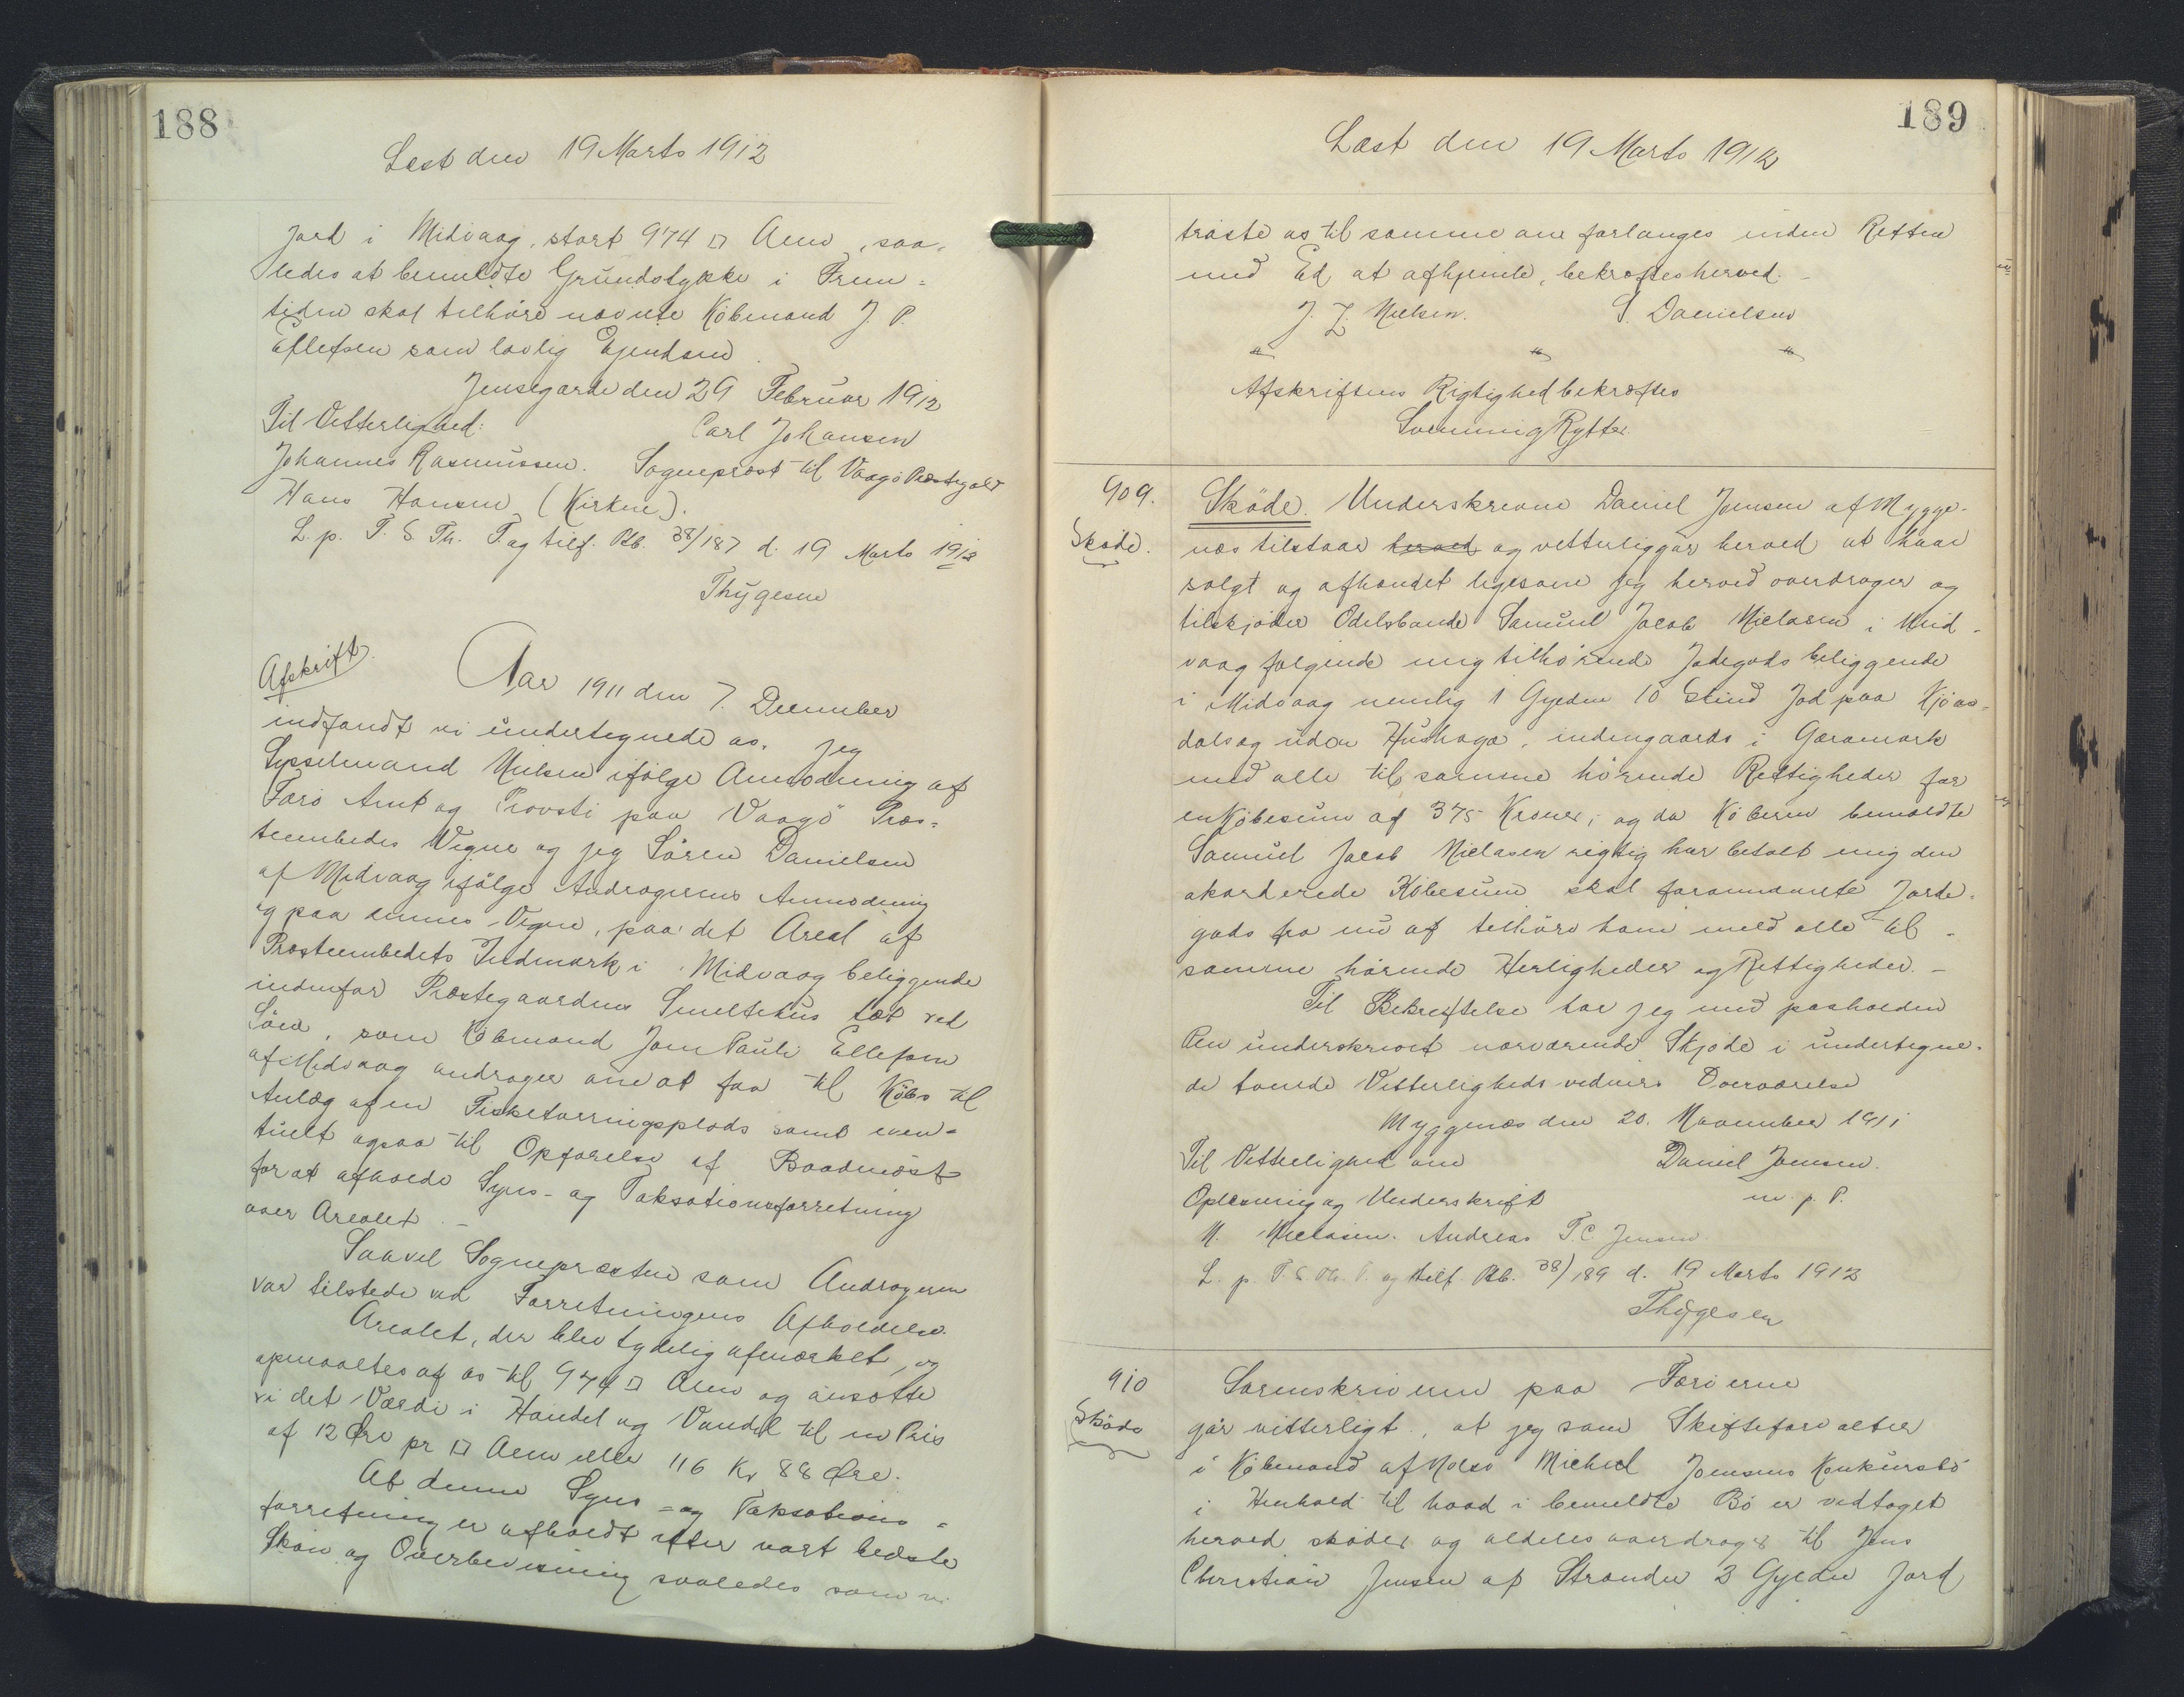 188
Læst den 19 Marts 1912
Jord i Midvaag, stort 974 □ Alen, saa-
ledes at bemeldte Grundstykke i Frem-
tiden skal tilhöre nævnte Köbmand J. P.
Ellefsen som lovlig Ejendom.
Jensegarde den 29 Februar 1912
Til Vitterlighed:
Carl Johansen
Johannes Rasmussen. Sognepræst til Vaagö Præstegæld
Hans Hansen (Kirken).
L. p. T. S. Th. T. og tilf. Ptb. 38/187 d. 19 Marts 1912
Thygesen
Afskrift.
Aar 1911 den 7. December
indfandt vi undertegnede os, jeg
Sysselmand Nielsen ifölge Anmodning af
Færö Amt og Provsti paa Vaagö Præs-
teembedes Vegne og jeg Sören Danielsen
af Midvaag ifölge Andragerens Anmodning
og paa dennes Vegne, paa det Areal af
Præsteembedets Indmark i Midvaag beliggende
indenfor Præstegaardens Smeltehus tæt ved
Söen, som Köbmand Joen Pauli Ellefsen
af Midvaag andrager om at faa til Köbs til
Anlæg af en Fisketörringsplads samt even-
tuelt ogsaa til Opförelse af Baadnöst
for at afholde Syns- og Taksationsforretning
over Arealet. -
Saavel Sognepræsten som Andrageren
var tilstede ved Forretningens Afholdelse.
Arealet, der blev tydelig afmærket, og
opmaaltes af os til 974 □ Alen og ansatte
vi det Værdi i Handel og Vandel til en Pris
af 12 Øre pr □ Alen eller 116 Kr 88 Øre.
At denne Syns- og Taksations-
forretning er afholdt efter vort bedste
Skön og Overbevisning saaledes som vi
189
Læst den 19 Marts 1912
tröste os til samme om forlanges inden Retten
med Ed at afhjemle, bekræftes herved. -
J. Z. Nielsen. S. Danielsen
" " "
Afskriftens Rigtighed bekræftes
Svenning Rytter.
909.
Sköde.
Sköde. Underskrevne Daniel Joensen af Mygge-
næs tilstaar herved og vitterliggör herved at have
solgt og afhændet ligesom jeg herved overdrager og
tilskjöder Odelsbonde Samuel Jacob Niclasen i Mid-
vaag fölgende mig tilhörende Jodegods beliggende
i Midvaag nemlig 1 Gylden 10 Skind Jod paa Kjöas-
dals og uden Hushaga, indengaards i Gæramork
med alle til samme hörende Rettigheder for
en Köbesum af 375 Kroner; og da Köberen bemeldte
Samuel Jacob Niclasen rigtig har betalt mig den
akorderede Köbesum skal forannævnte Jorde-
gods fra nu af tilhöre ham med alle til-
samme hörende Herligheder og Rettigheder. -
Til Bekræftelse har jeg med paaholden
Pen underskrevet nærværende Skjöde i undertegne-
de tvende Vitterligheds vidners Overværelse
Myggenæs den 20. November 1911
Til Vitterlighed om
Daniel Joensen.
Oplæsning og Underskrift
m. p. P.
N. Niclasen. Andreas T. C. Jensen.
L. p. T. S. Th. T. og tilf. Ptb. 38/189 d. 19 Marts 1912
Thygesen
910
Sköde
Sorenskriveren paa Færöerne
gör vitterligt, at jeg som Skifteforvalter
i Köbmand af Nolsö Michael Joensens Konkursbo
i Henhold til hvad i bemeldte Bo er vedtaget
herved sköder og aldeles overdrager til Jens
Christian Jensen af Strænder 2 Gylden Jord